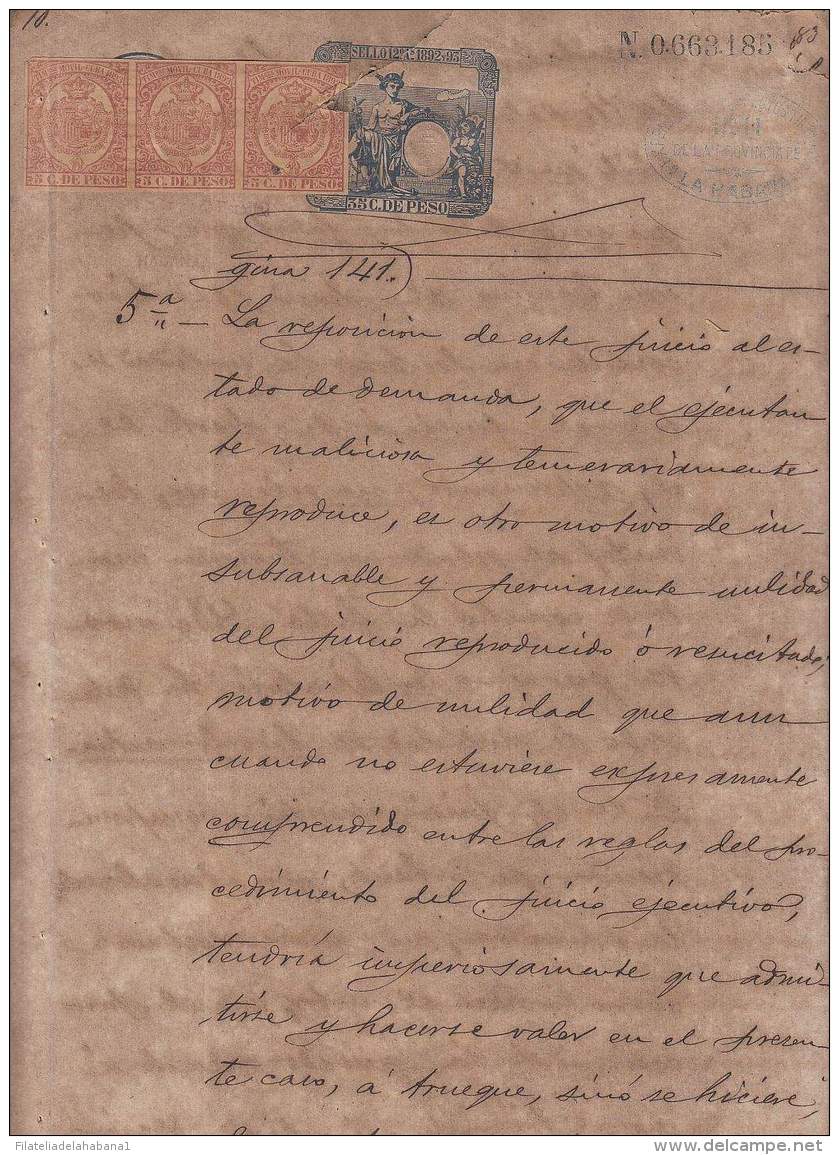 10.
SELLO 12º. 1892-93
N. 0.663.185
83
35 C. DE PESO
5 C. DE PESO 5 C. DE PESO 5 C. DE PESO
DE LA PROVINCIA DE
LA HABANA
gina 141.)
5ª — La reposicion de este juicio al es-
tado de demanda, que el ejecutan
te maliciosa y temerariamente
reproduce, es otro motivo de in-
subsanable y permanente nulidad
del juicio reproducido ó resucitado,
motivo de nulidad que aun
cuando no estuviere expresamente
comprendido entre las reglas del pro-
cedimiento del juicio ejecutivo,
tendría imperiosamente que admi-
tirse y hacerse valer en el presen
te caso, á trueque, sinó se hiciere,
Filateliadelahabana1
www.delcampe.net